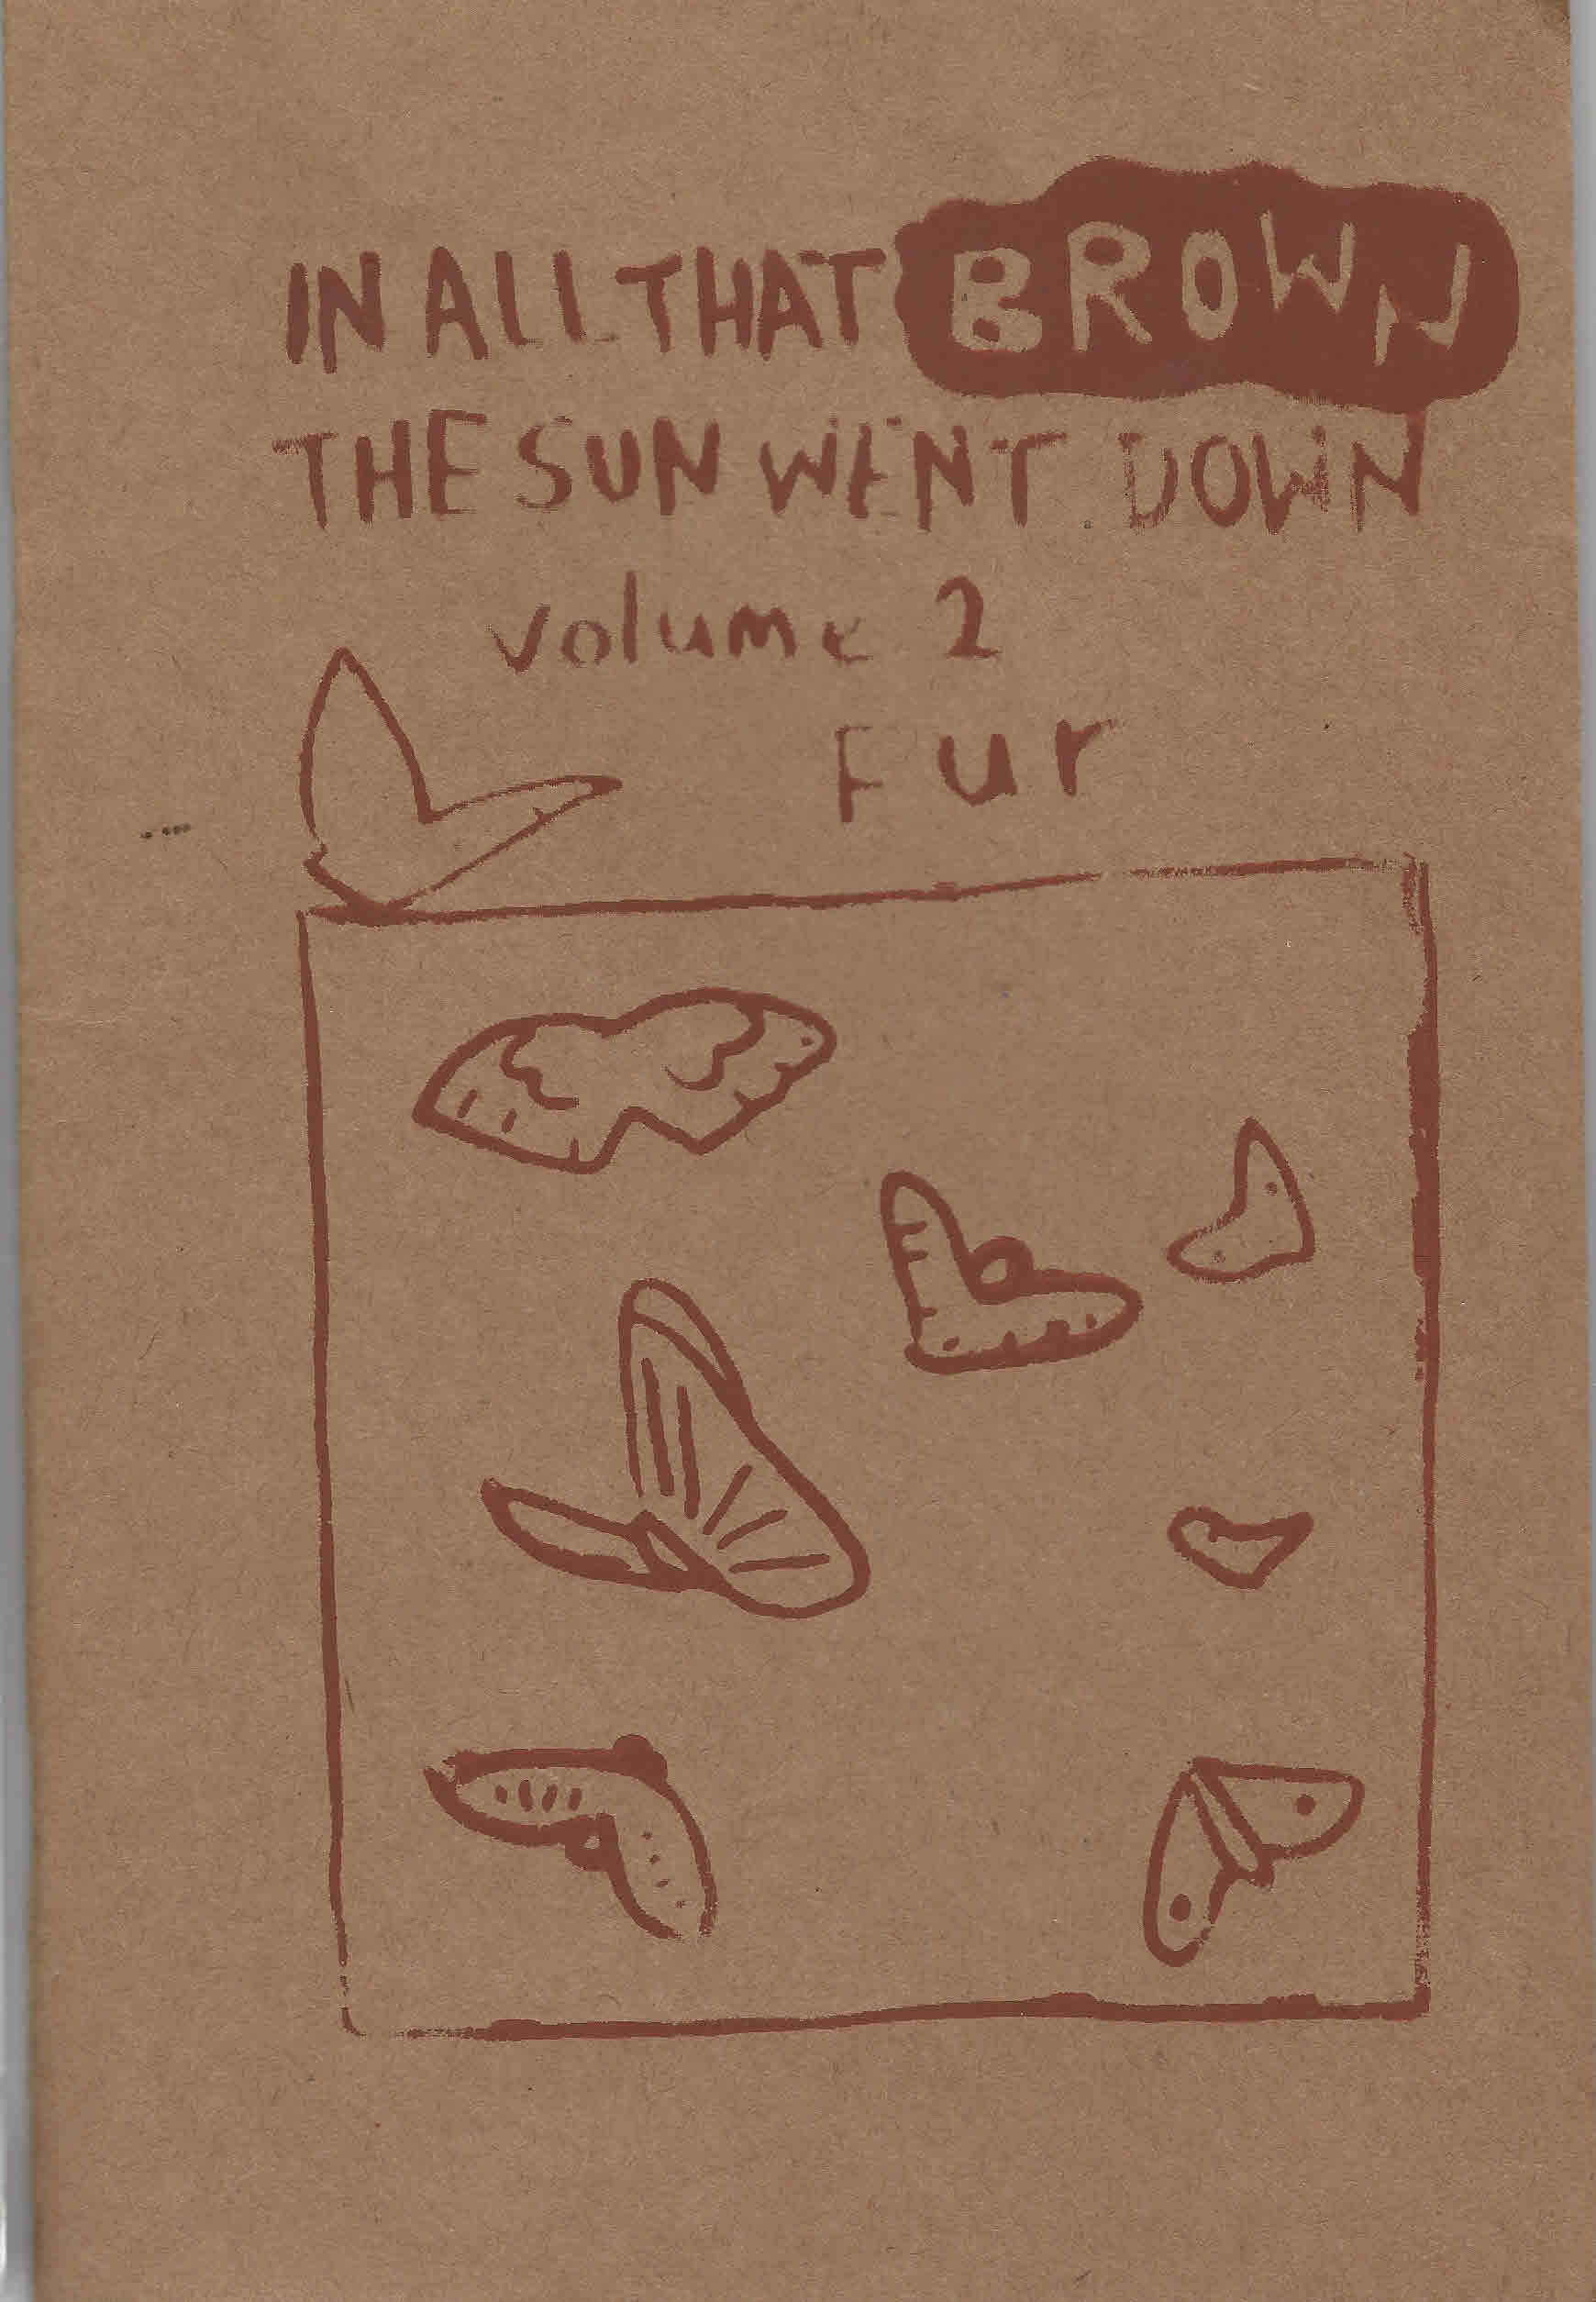 IN ALL THAT BROWN
THE SUN WENT DOWN
volume 2
Fur